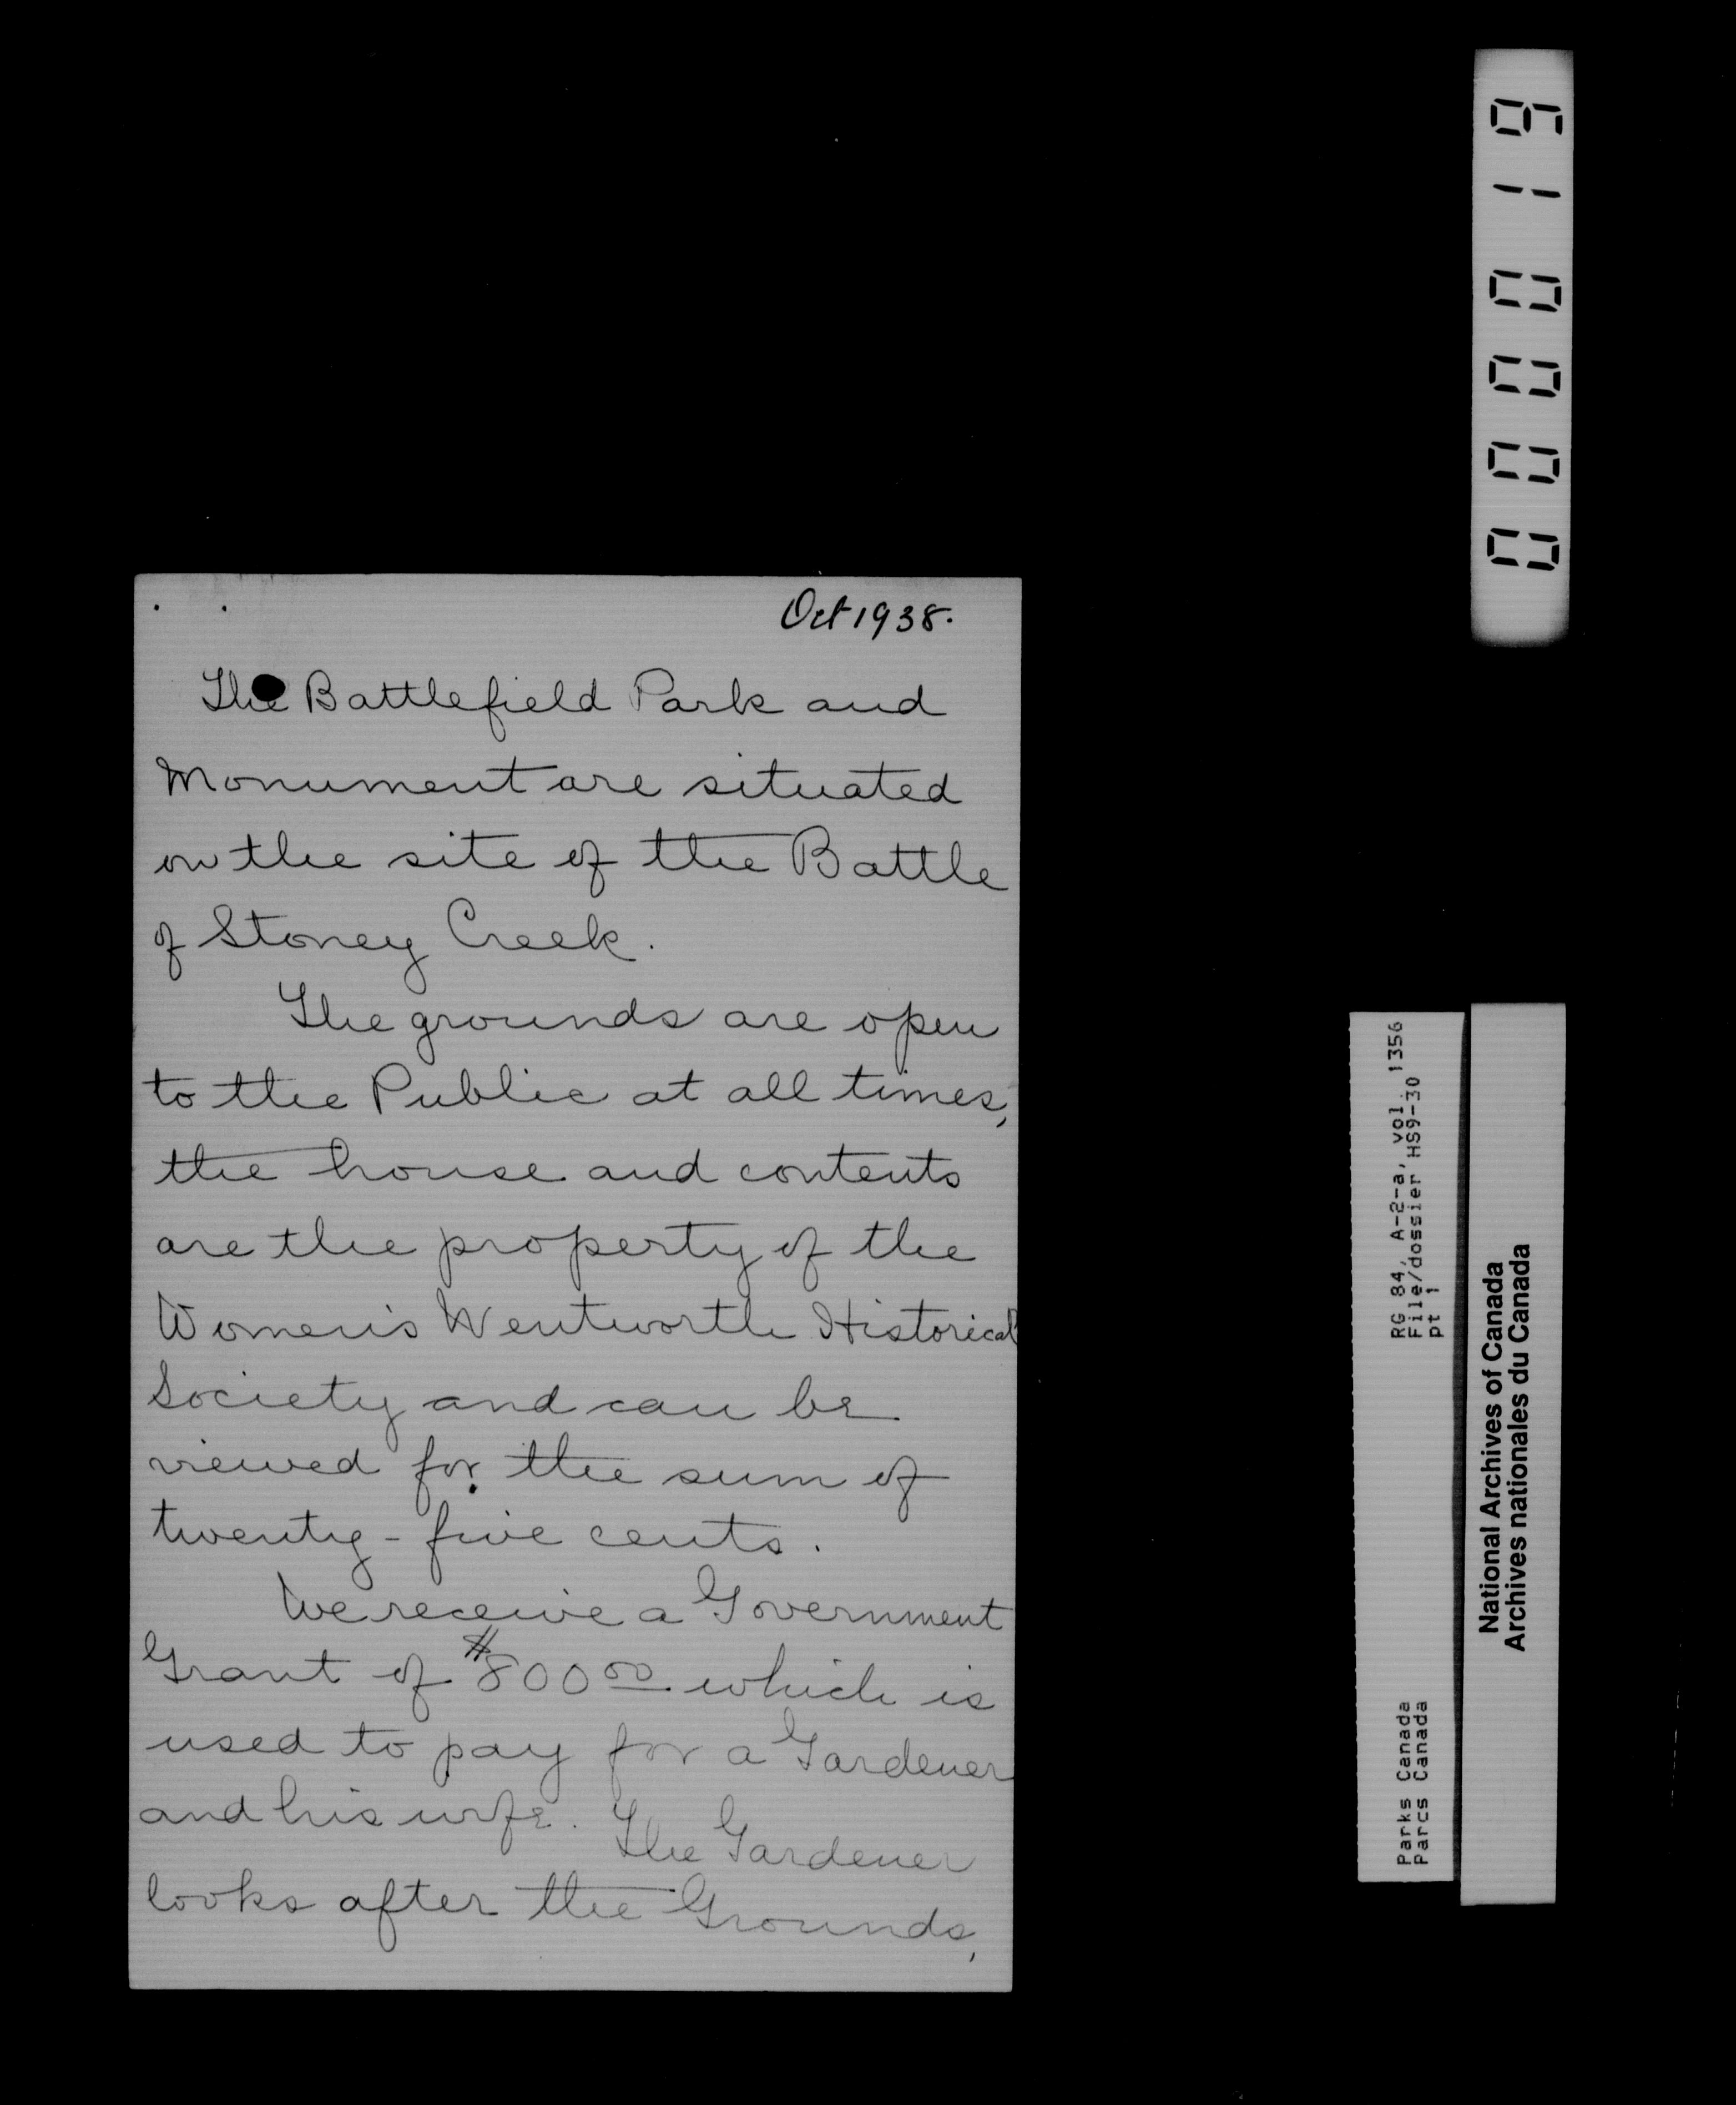 Oct 1938.
The Battlefield Park and
Monument are situated
on the site of the Battle
of Stoney Creek.
The grounds are open
to the Public at all times,
the house and contents
are the property of the
Women's Wentworth Historical
Society and can be
viewed for the sum of
twenty-five cents.
We receive a Government
Grant of $800 00 which is
used to pay for a Gardener
and his wife. The Gardener
looks after the Grounds,
000019
RG 84, A-2-a, vol. 1356
File/dossier HS9-30
pt 1
Parks Canada
Parcs Canada
National Archives of Canada
Archives nationales du Canada